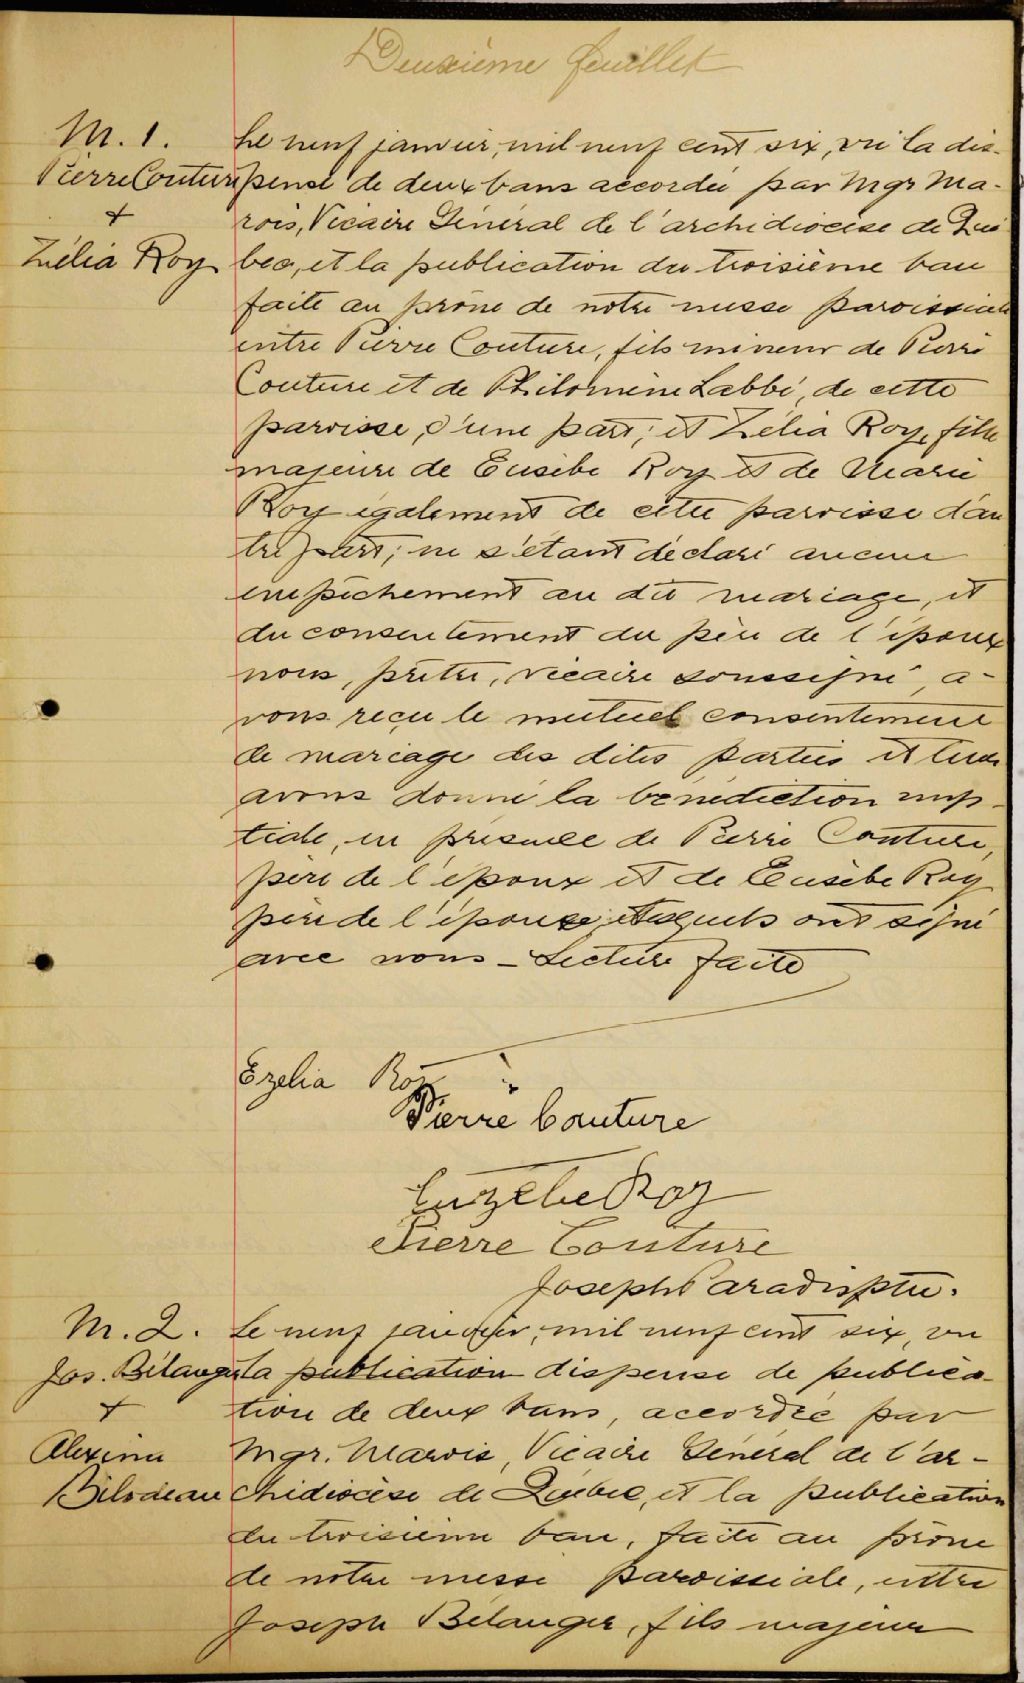 Deuxième feuillet
M. 1.
Pierre Couture
+
Zélia Roy
Le neuf janvier, mil neuf cent six, vu la dis-
pense de deux bans accordée par Mgr Ma-
rois, Vicaire Général de l'archidiocèse de Qué
bec, et la publication du troisième ban
faite au prône de notre messe paroissiale
entre Pierre Couture, fils mineur de Pierre
Couture et de Philomène Labbé, de cette
paroisse, d'une part; et Zélia Roy, fille
majeure de Eusèbe Roy et de Marie
Roy également de cette paroisse d'au
tre part; ne s'étant déclaré aucun
empêchement au dit mariage, et
du consentement du père de l'époux
nous, prêtre, vicaire soussigné, a-
vons reçu le mutuel consentement
de mariage des dites parties et leur
avons donné la bénédiction nup-
tiale, en présence de Pierre Couture,
père de l'époux et de Eusèbe Roy
père de l'épouse, lesquels ont signé
avec nous - Lecture faite
Ezelia Roy
Pierre Couture
Euzebe Roy
Pierre Couture
Joseph Paradis ptre.
M. 2.
Jos. Bélanger
+
Alexina
Bilodeau
Le neuf janvier, mil neuf cent six, vu
la publication dispense de publica-
tion de deux bans, accordée par
Mgr. Marois, Vicaire Général de l'ar-
chidiocèse de Québec, et la publication
du troisième ban, faite au prône
de notre messe paroissiale, entre
Joseph Bélanger, fils majeur